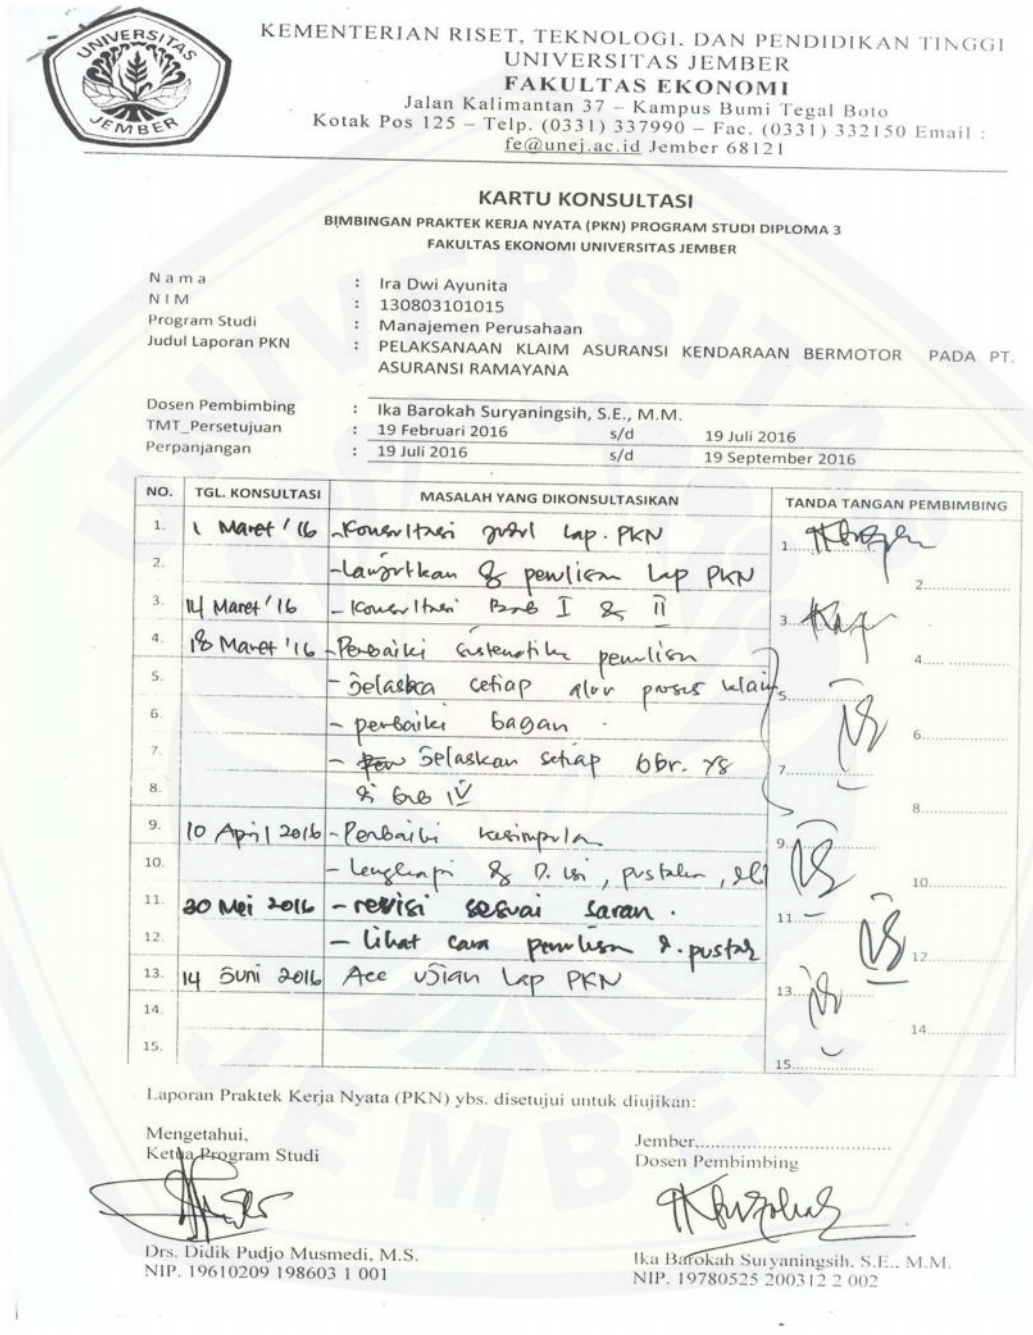 UNIVERSITAS
JEMBER
KEMENTERIAN RISET, TEKNOLOGI. DAN PENDIDIKAN TINGGI
UNIVERSITAS JEMBER
FAKULTAS EKONOMI
Jalan Kalimantan 37 – Kampus Bumi Tegal Boto
Kotak Pos 125 – Telp. (0331) 337990 – Fac. (0331) 332150 Email :
fe@unej.ac.id Jember 68121
KARTU KONSULTASI
BIMBINGAN PRAKTEK KERJA NYATA (PKN) PROGRAM STUDI DIPLOMA 3
FAKULTAS EKONOMI UNIVERSITAS JEMBER
N a m a : Ira Dwi Ayunita
N I M : 130803101015
Program Studi : Manajemen Perusahaan
Judul Laporan PKN : PELAKSANAAN KLAIM ASURANSI KENDARAAN BERMOTOR PADA PT.
ASURANSI RAMAYANA
Dosen Pembimbing : Ika Barokah Suryaningsih, S.E., M.M.
TMT_Persetujuan : 19 Februari 2016 s/d 19 Juli 2016
Perpanjangan : 19 Juli 2016 s/d 19 September 2016
NO. TGL. KONSULTASI MASALAH YANG DIKONSULTASIKAN TANDA TANGAN PEMBIMBING
1. 1 Maret '16 - Konsultasi judul Lap. PKN 1.....
2. - Lanjutkan penulisan Lap PKN 2.....
3. 14 Maret '16 - Konsultasi Bab I & II 3.....
4. 18 Maret '16 - Perbaiki sistematika penulisan 4.....
5. - Jelaskan setiap alur proses klaim 5.....
6. - perbaiki bagan 6.....
7. - Jelaskan setiap gbr. yg 7.....
8. di bab IV 8.....
9. 10 April 2016 - Perbaiki kesimpulan 9.....
10. - Lengkapi D. isi, pustaka, dll 10.....
11. 20 Mei 2016 - revisi sesuai saran. 11.....
12. - Lihat cara penulisan d. pustaka 12.....
13. 14 Juni 2016 Acc ujian Lap PKN 13.....
14. 14.....
15. 15.....
Laporan Praktek Kerja Nyata (PKN) ybs. disetujui untuk diujikan:
Mengetahui, Jember,.....
Ketua Program Studi Dosen Pembimbing
Drs. Didik Pudjo Musmedi, M.S. Ika Barokah Suryaningsih, S.E., M.M.
NIP. 19610209 198603 1 001 NIP. 19780525 200312 2 002